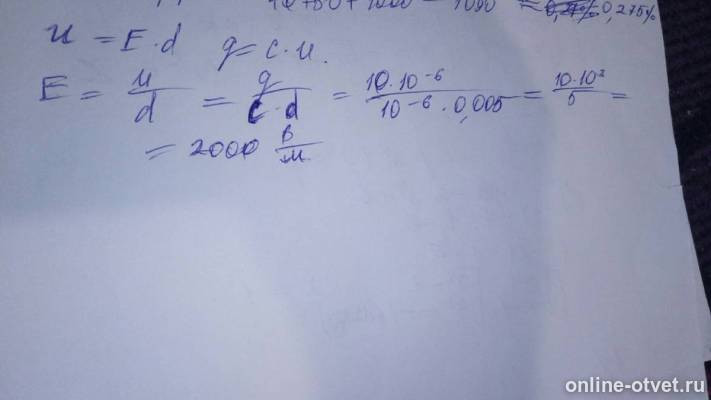 10+50+1000 1000 = 0,275%
U = E·d q = C·U.
E = U/d = q/(C·d) = 10·10⁻⁶/(10⁻⁶·0,005) = 10·10³/5 =
= 2000 В/м
online-otvet.ru